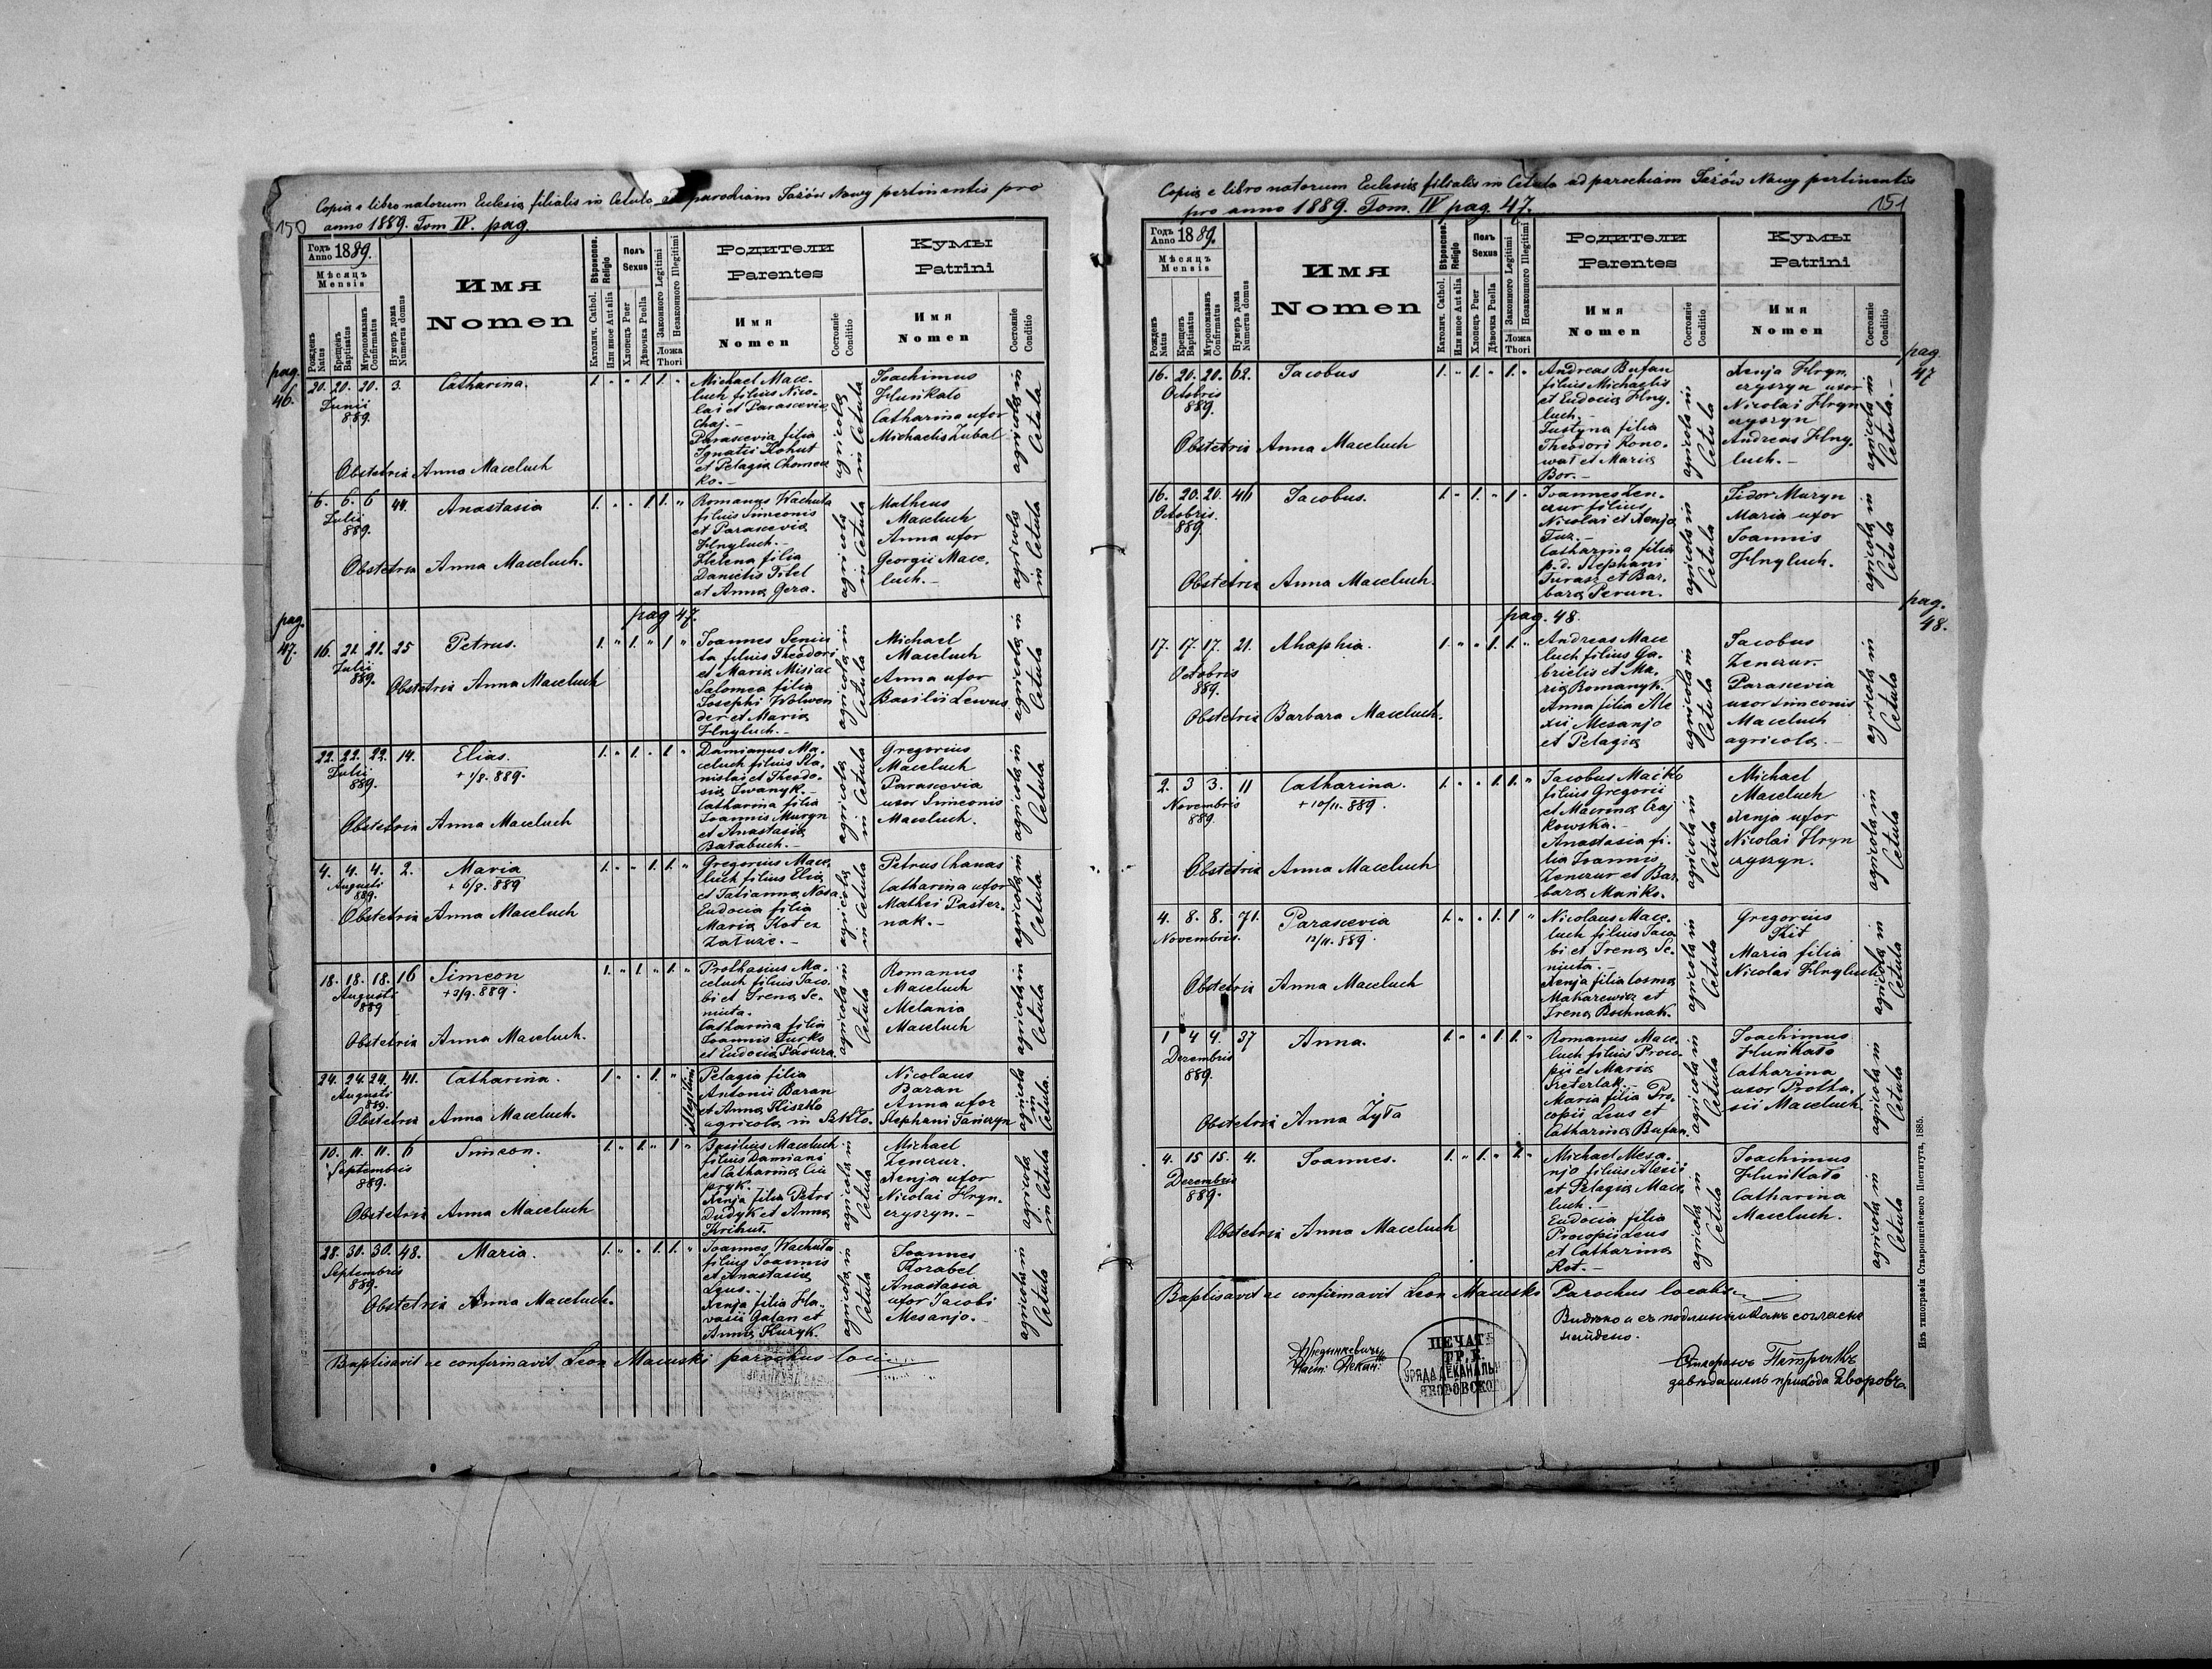 Copia e libro natorum Eclesiæ filialis in Cetula ad parochiam Jażów Nowy pertinentis pro
150 anno 1889. Tom IV. pag
Годъ Anno 1889.
Мѣсяцъ Mensis
Рожденъ Natus
Крещенъ Baptisatus
Муропомазанъ Confirmatus
Нумеръ дома Numerus domus
Имя
Nomen
Вѣроисков. Religio
Католич. Cathol.
Или иное Aut alia
Полъ Sexus
Хлопецъ Puer
Дѣвочка Puella
Законного Legitimi
Незаконного Illegitimi
Ложа Thori
Родители
Parentes
Имя Nomen
Состояніе Conditio
Кумы
Patrini
Имя Nomen
Состояніе Conditio
pag. 46.
20. 20. 20. 3. Catharina. 1. " " 1. 1. "
Junii
889.
Obstetrix Anna Maceluch
Michael Mace-
luch filius Nico-
lai et Parascevia
Chaj.-
Parascevia filia
Ignatii Kohut
et Pelagia
ko.-
agricola in Cetula
Joachimus
Huńkało
Catharina uxor
Michaelis Zubal
agricola in Cetula
6. 6. 6 44. Anastasia 1. " " 1. 1. "
Julii
889.
Obstetrix Anna Maceluch.
Romanus Wachuła
filius Simeonis
et Parascevia
Hnyluch.-
Helena filia
Danielis Titel
et Anna Gera.
agricola in Cetula
Matheus
Maceluch
Anna uxor
Georgii Mace-
luch.-
agricola in Cetula
pag 47.
pag. 47.
16. 21. 21. 25 Petrus. 1. " 1. " 1 "
Julii
889.
Obstetrix Anna Maceluch
Joannes Seniu
ta filius Theodori
et Maria Misiac
Salomea filia
Josephi Wolwen
der et Maria
Hnyluch.-
agricola in Cetula
Michael
Maceluch
Anna uxor
Basilii Lewus
agricola in Cetula
22. 22. 22. 14. Elias. 1. " 1. " 1. "
Julii + 1/8. 889.
889.
Obstetrix Anna Maceluch
Damianus Ma-
celuch filius Sta-
nislai et Theodo-
sia Iwanyk.-
Catharina filia
Joannis Muryn
et Anastasia
Barabuch.-
agricola in Cetula
Gregorius
Maceluch
Parascevia
uxor Simeonis
Maceluch.
agricola in Cetula
4. 4. 4. 2. Maria 1. " " 1. 1. "
Augusti + 6/8. 889
889.
Obstetrix Anna Maceluch
Gregorius Mace-
luch filius Elia
et Tatianna Nosa
Eudocia filia
Maria Kot ex
Załuże.-
agricola in Cetula
Petrus Chanas
Catharina uxor
Mathei Paster-
nak.-
agricola in Cetula
18. 18. 18. 16 Simeon 1. " 1. " 1. "
Augusti + 2/9. 889.
889
Obstetrix Anna Maceluch.
Prothasius Ma-
celuch filius Jaco-
bi et Irena Se-
niuta.
Catharina filia
Joannis Turko
et Eudocia
agricola in Cetula
Romanus
Maceluch
Melania
Maceluch
agricola in Cetula
24. 24. 24. 41. Catharina. 1. " " 1. " illegitimi
Augusti
889.
Obstetrix Anna Maceluch.
Pelagia filia
Antonii Baran
et Anna Kliszko
agricola in Szkło.
Nicolaus
Baran
Anna uxor
Stephani Tańczyn
agricola in Cetula.
10. 11. 11. 6 Simeon. 1. " 1. " 1. "
Septembris
889.
Obstetrix Anna Maceluch
Basilius Maceluch
filius Damiani
et Catharina Ciu
pryk.-
Xenja filia Petri
Dudyk et Anna
Krihut.
agricola in Cetula
Michael
Zenczur.
Xenja uxor
Nicolai Hryn-
czyszyn.-
agricola in Cetula
28. 30. 30. 48. Maria. 1. " " 1. 1. "
Septembris
889.
Obstetrix Anna Maceluch.
Joannes Wachuła
filius Joannis
et Anastasia
Leus.-
Xenja filia Hla-
vasii Galan et
Anna Huzyk.
agricola in Cetula
Joannes
Korabel
Anastasia
uxor Jacobi
Mesanjo.-
agricola in Cetula
Baptisavit ac confirmavit Leon Macuski parochus loci
Copia e libro natorum Eclesiæ filialis in Cetula ad parochiam Jażów Nowy pertinentis
pro anno 1889. Tom. IV pag. 47. 151
Годъ Anno 1889.
Мѣсяцъ Mensis
Рожденъ Natus
Крещенъ Baptisatus
Муропомазанъ Confirmatus
Нумеръ дома Numerus domus
Имя
Nomen
Вѣроисков. Religio
Католич. Cathol.
Или иное Aut alia
Полъ Sexus
Хлопецъ Puer
Дѣвочка Puella
Законного Legitimi
Незаконного Illegitimi
Ложа Thori
Родители
Parentes
Имя Nomen
Состояніе Conditio
Кумы
Patrini
Имя Nomen
Состояніе Conditio
pag. 47
16. 20. 20. 62. Jacobus 1. " 1. " 1. "
Octobris
889.
Obstetrix Anna Maceluch
Andreas Bufan
filius Michaelis
et Eudocia Hny-
luch.-
Justyna filia
Theodori Kono-
wał et Maria
Bor.-
agricola in Cetula
Xenja Hryn-
czyszyn uxor
Nicolai Hryn
czyszyn
Andreas Hny-
luch.-
agricola in Cetula.-
16. 20. 20. 46 Jacobus. 1. " 1. " 1. "
Octobris.
889.
Obstetrix Anna Maceluch.
Joannes Zen-
czur filius
Nicolai et Xenja
Tuz.-
Catharina filia
p. d. Stephani
Jurasz et Bar-
bara Perun.
agricola in Cetula
Fidor Muryn
Maria uxor
Joannis
Hnyluch.
agricola in Cetula
pag. 48.
pag. 48.
17. 17. 17. 21. Ahaphia. 1. " " 1. 1. "
Octobris
889.
Obstetrix Barbara Maceluch.
Andreas Mace
luch filius Ga-
brielis et Ma-
ria Romanyk.
Anna filia Ale
xii Mesanjo
et Pelagia
agricola in Cetula
Jacobus
Zenczur.-
Parascevia
uxor Simeonis
Maceluch
agricola.-
agricola in Cetula
2. 3 3. 11 Catharina. 1. " " 1. 1. "
Novembris + 10/11. 889.
889.
Obstetrix Anna Maceluch
Jacobus Maćko
filius Gregorii
et Macrina Czaj
kowska.-
Anastasia fi-
lia Joannis
Zenczur et Bar-
bara Mańko.
agricola in Cetula
Michael
Maceluch
Xenja uxor
Nicolai Hryn
czyszyn.
agricola in Cetula
4. 8. 8. 71. Parascevia 1. " " 1. 1 "
Novembris. 12/11. 889.
Obstetrix Anna Maceluch
Nicolaus Mace-
luch filius Jaco-
bi et Irena Se-
niuta.-
Xenja filia Cosma
Makarewicz et
Irena
agricola in Cetula
Gregorius
Kit
Maria filia
Nicolai Hnyluch
agricola in Cetula
1 4 4. 37 Anna. 1. " " 1. 1. "
Dezembris
889.
Obstetrix Anna Żyła
Romanus Mace-
luch filius Proco
pii et Maria
Maria filia Pro-
copii Leus et
Catharina Bufan.
agricola in Cetula
Joachimus
Huńkało
Catharina
uxor Protha-
sii Maceluch
agricola in Cetula
4. 15 15. 4. Joannes. 1. " 1. " 1. "
Dezembris
889.
Obstetrix Anna Maceluch
Michael Mesa-
njo filius Alexii
et Pelagia Mace-
luch.-
Eudocia filia
Procopii Leus
et Catharina
Kot.-
agricola in Cetula
Joachimus
Huńkało
Catharina
Maceluch.
agricola in Cetula
Baptisavit ac confirmavit Leon Macuski Parochus localis
Видѣно и съ подлинникомъ согласно
найдено.
Декан.
ПЕЧАТЬ
ГР. К.
УРЯДА ДЕКАНАЛЬН
ЯВОРОВСКОГО
завѣдатель прихода Яворовъ
Изъ типографіи Ставропигійского Института, 1885.